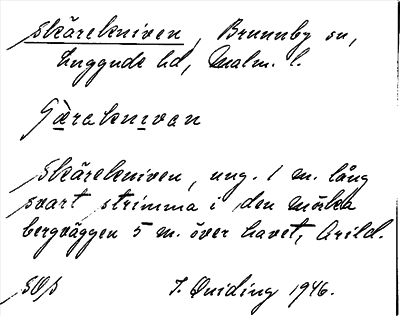 Skäreknìven, Brunnby sn,
Luggude hd, Malm. l.
Sjæraknivan
Skäreknìven, ung. 1 m. lång
svart strimma i den mörka
bergväggen 5 m. över havet, Arild.
I. Quiding 1946.